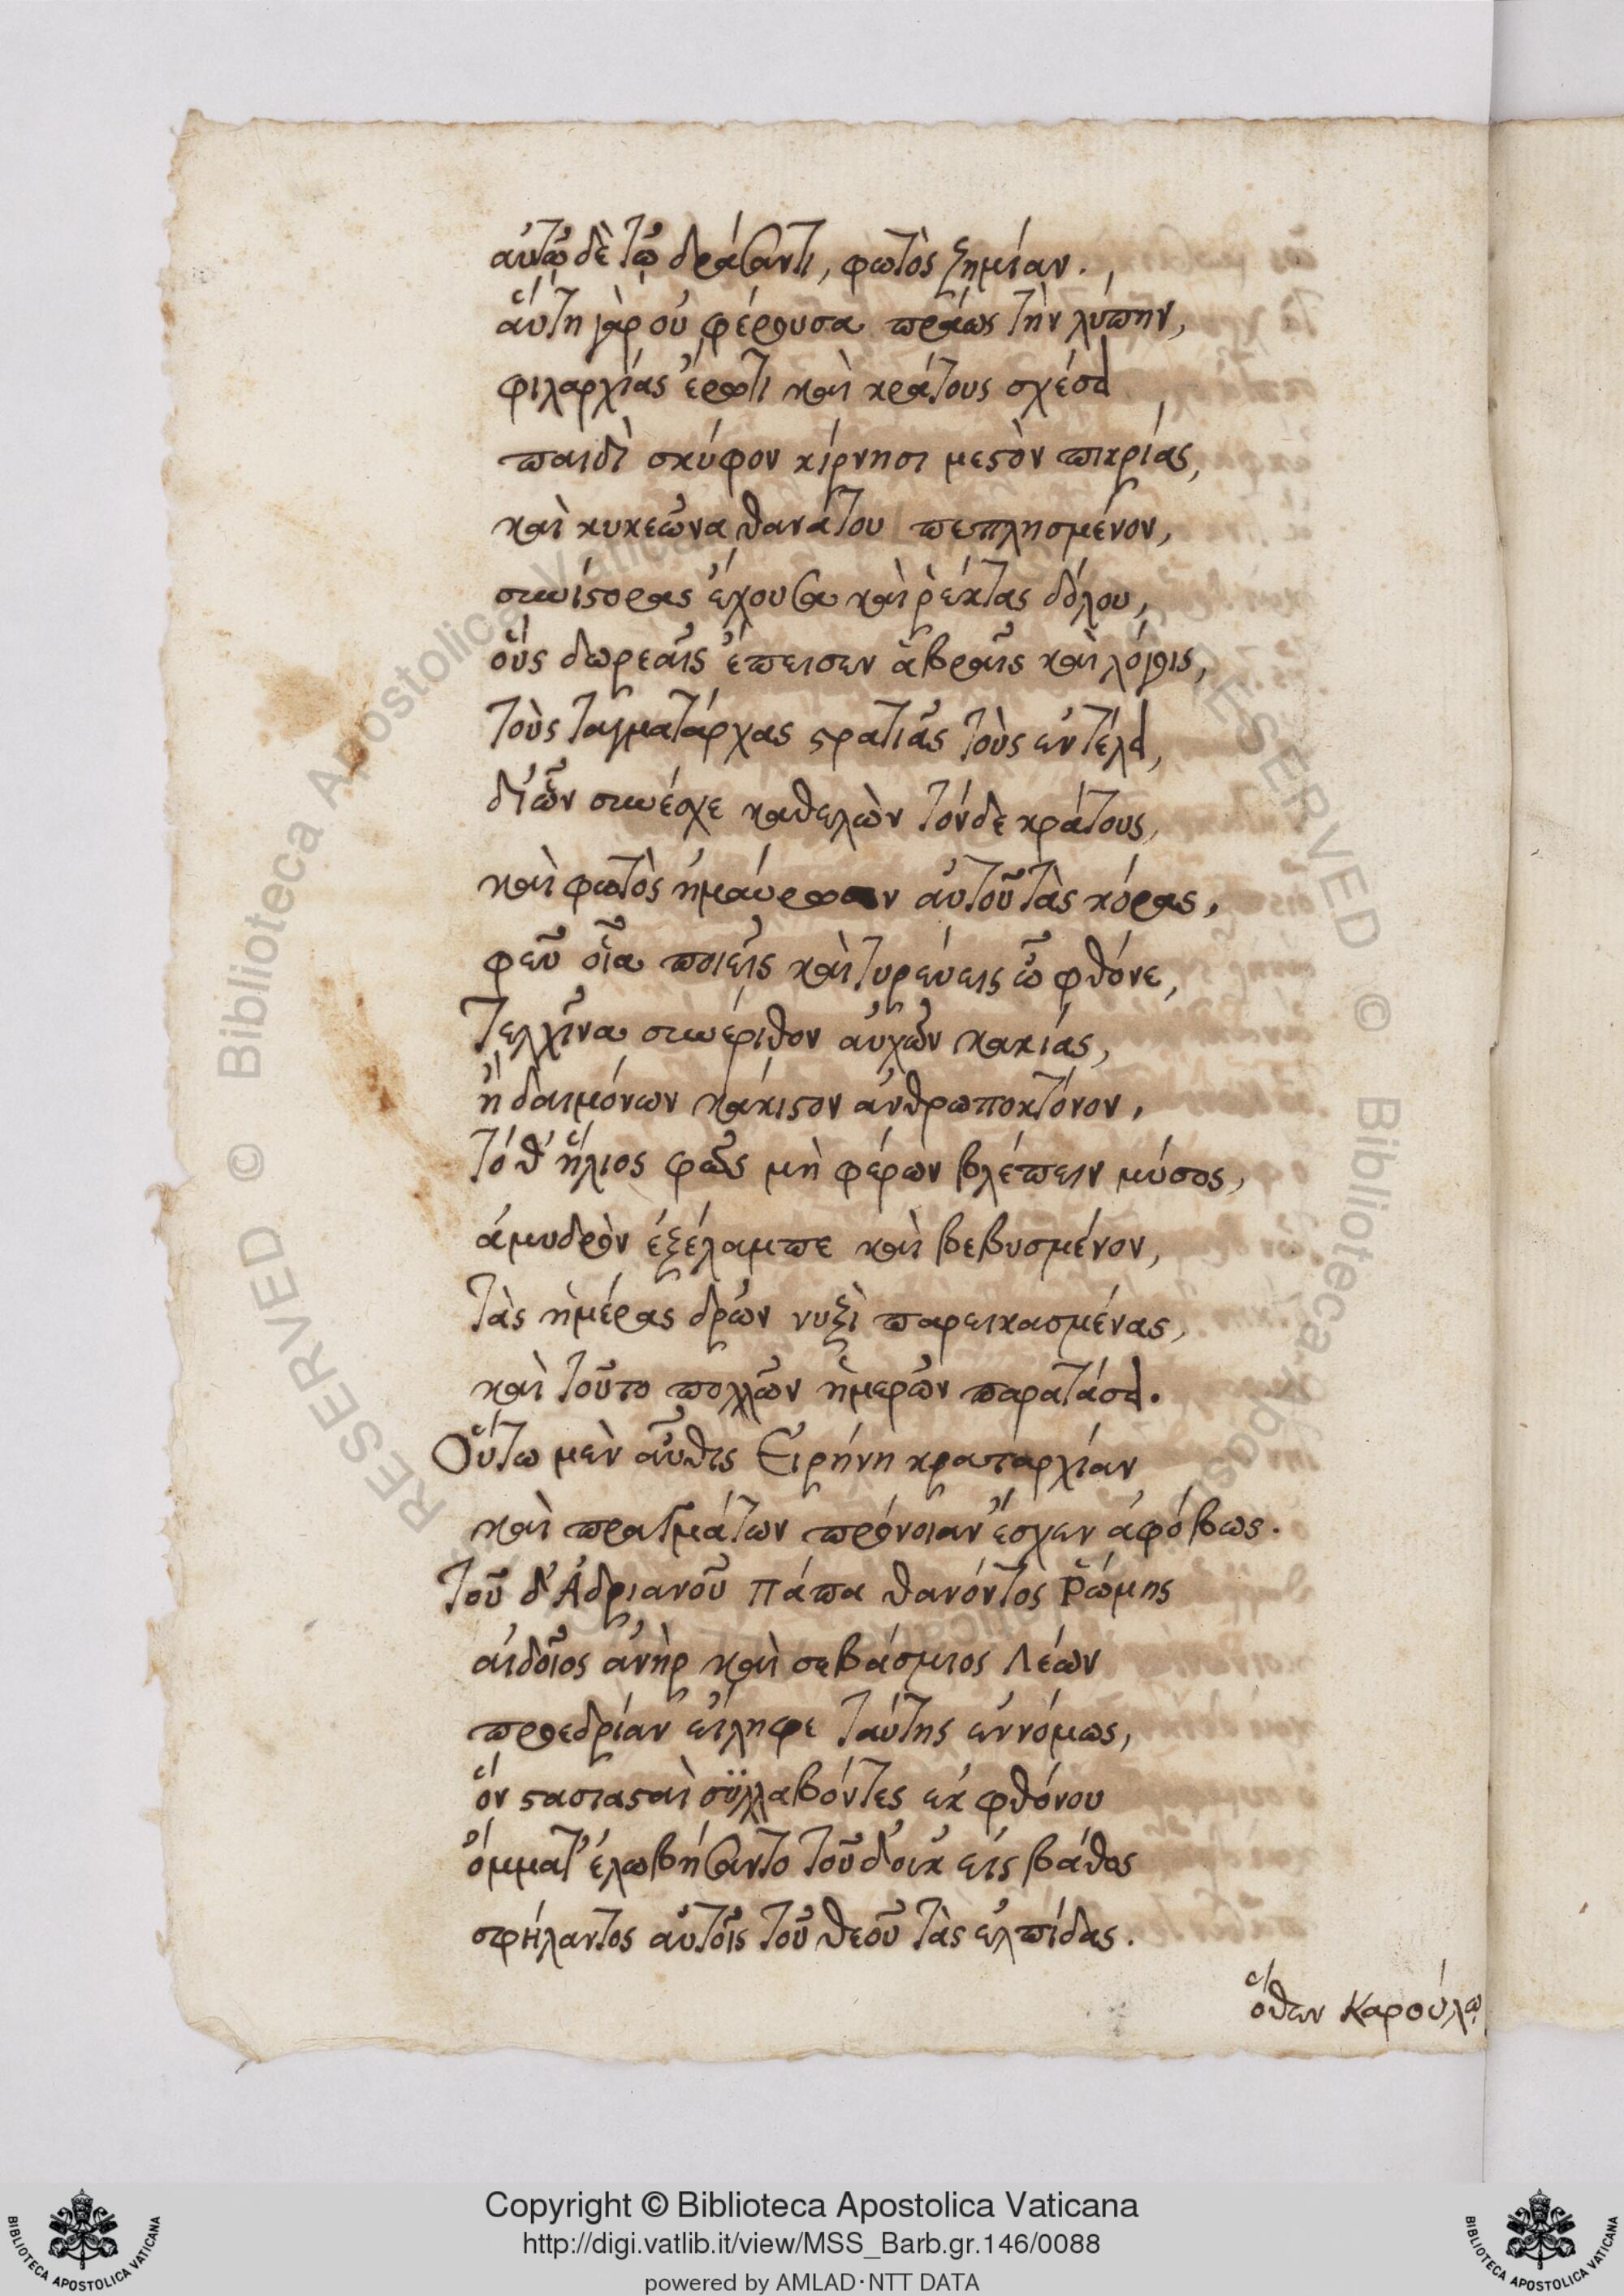 αὐτῷ δὲ τῷ δράσαντι, φωτὸς ζημίαν.
αὕτη γὰρ οὐ φέρουσα πράως τὴν λύπην,
φιλαρχίας ἔρωτι καὶ κράτους σχέσει
παιδὶ σκύφον κίρνησι μεστὸν πικρίας,
καὶ κυκεῶνα θανάτου πεπλησμένον,
συνίστορας ἔχουσα καὶ ῥέκτας δόλου,
οὓς δωρεαῖς ἔπεισεν ἁβραῖς καὶ λόγοις,
τοὺς ταγματάρχας στρατιᾶς τοὺς ἐν τέλει,
δι' ὧν συνέσχε καθελὼν τόνδε κράτους,
καὶ φωτὸς ἠμαύρωσεν αὐτοῦ τὰς κόρας.
φεῦ οἷα ποιεῖς καὶ τυρεύεις ὦ φθόνε,
Τελχῖνα συνέριθον αὐχῶν κακίας,
ἢ δαιμόνων κάκιστον ἀνθρωποκτόνον.
τό θ' ἥλιος φῶς μὴ φέρων βλέπειν μύσος,
ἀμυδρὸν ἐξέλαμπε καὶ βεβυσμένον,
τὰς ἡμέρας δρῶν νυξὶ παρεικασμένας,
καὶ τοῦτο πολλῶν ἡμερῶν παρατάσει.
Οὕτω μὲν αὖθις Εἰρήνη κραταρχίαν
καὶ πραγμάτων πρόνοιαν ἔσχεν ἀφόβως.
Τοῦ δ' Ἀδριανοῦ Πάπα θανόντος Ῥώμης
αἰδοῖος ἀνὴρ καὶ σεβάσμιος Λέων
προεδρίαν εἴληφε ταύτης ἐννόμως,
ὃν στασιασταὶ συλλαβόντες ἐκ φθόνου
ὄμματ' ἐλωβήσαντο τοῦδ' οὐκ εἰς βάθος
σφήλαντος αὐτοῖς τοῦ θεοῦ τὰς ἐλπίδας.
ὅθεν Καρούλῳ
Copyright © Biblioteca Apostolica Vaticana
http://digi.vatlib.it/view/MSS_Barb.gr.146/0088
powered by AMLAD·NTT DATA